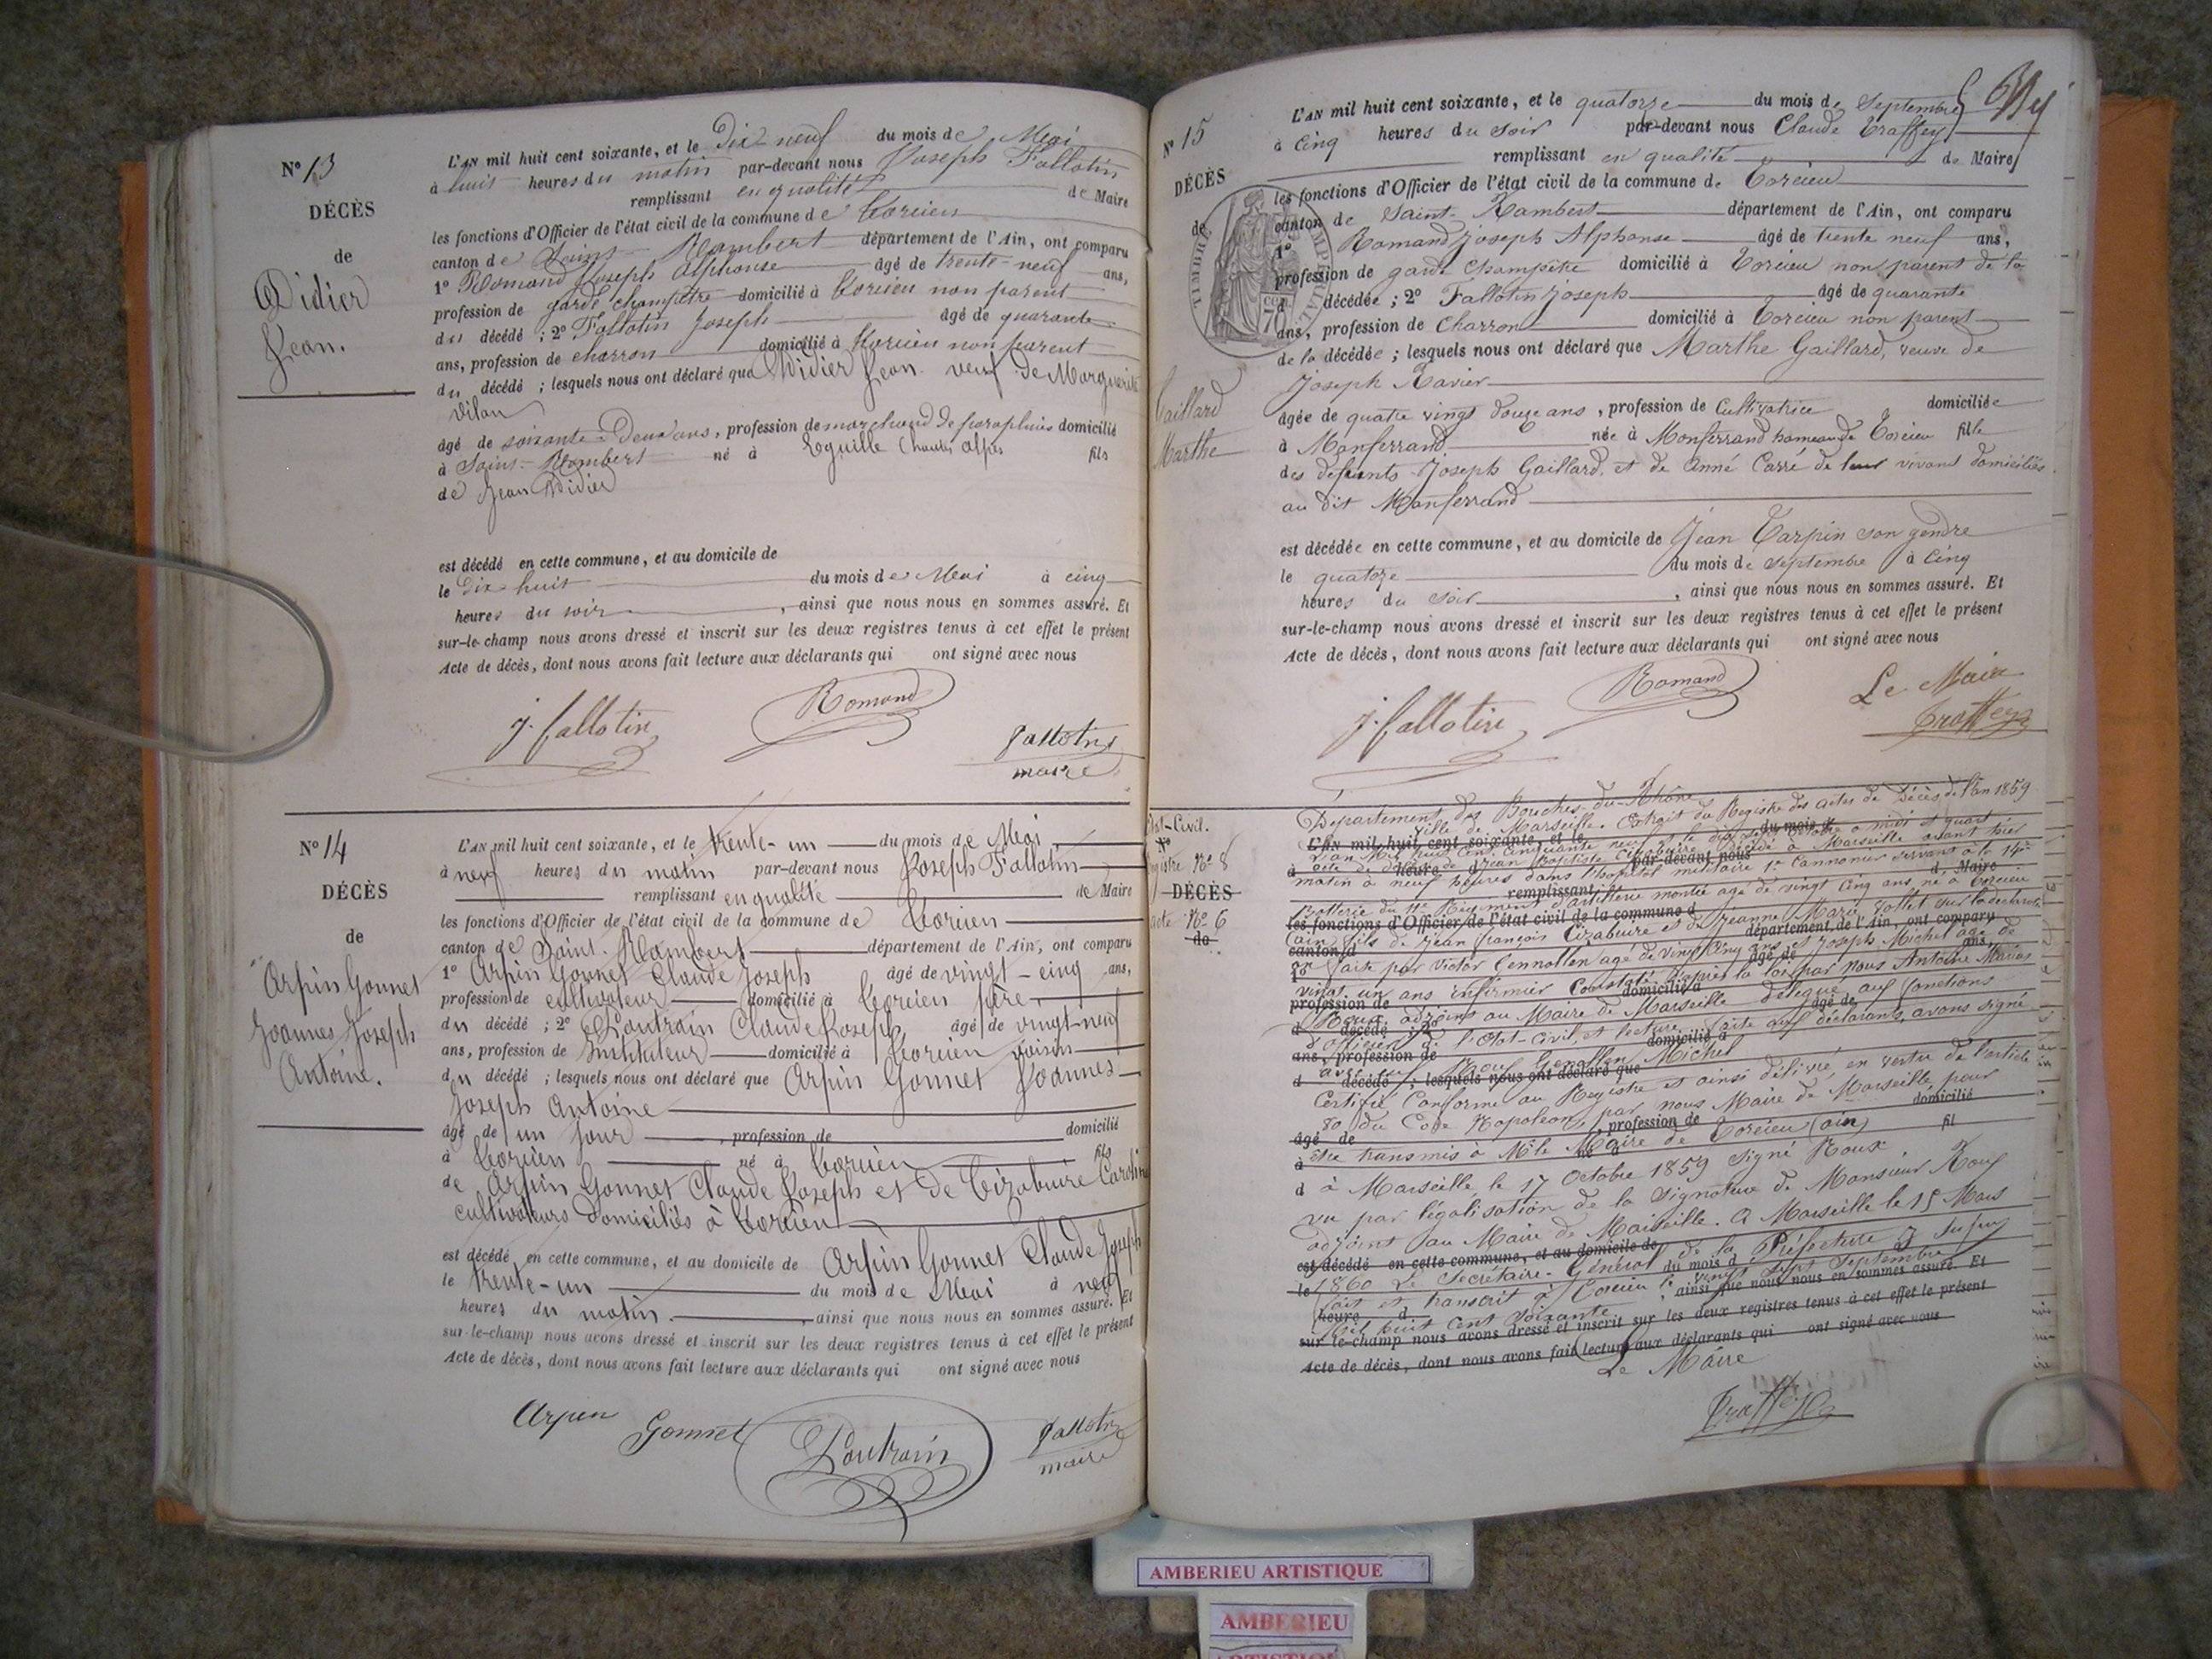 N° 13
DÉCÈS
de
Didier
Jean.
L'AN mil huit cent soixante, et le Dix neuf du mois de Mai
à huit heures du matin par-devant nous Joseph Fallotin
remplissant en qualité de Maire
les fonctions d'Officier de l'état civil de la commune de Torcieu
canton de Saint-Rambert département de l'Ain, ont comparu
1° Romand Joseph Alphonse âgé de trente-neuf ans,
profession de garde champêtre domicilié à Torcieu non parent
du décédé ; 2° Fallotin Joseph âgé de quarante
ans, profession de charron domicilié à Torcieu non parent
du décédé ; lesquels nous ont déclaré que Didier Jean veuf de Marguerite
Vilan
âgé de soixante-Deux ans, profession de marchand de parapluies domicilié
à Saint-Rambert né à Eguille hautes alpes fils
de Jean Didier
est décédé en cette commune, et au domicile de
le Dix huit du mois de Mai à cinq
heures du soir, ainsi que nous nous en sommes assuré. Et
sur-le-champ nous avons dressé et inscrit sur les deux registres tenus à cet effet le présent
Acte de décès, dont nous avons fait lecture aux déclarants qui ont signé avec nous
J. fallotin Romand fallotin
maire
N° 14
DÉCÈS
de
Arpin Gonnet
Joannes Joseph
Antoine.
L'AN mil huit cent soixante, et le trente-un du mois de Mai
à neuf heures du matin par-devant nous Joseph Fallotin
remplissant en qualité de Maire
les fonctions d'Officier de l'état civil de la commune de Torcieu
canton de Saint-Rambert département de l'Ain, ont comparu
1° Arpin Gonnet Claude Joseph âgé de vingt-cinq ans,
profession de cultivateur domicilié à Torcieu père
du décédé ; 2° Loutrain Claude Joseph âgé de vingt-neuf
ans, profession de Instituteur domicilié à Torcieu voisin
du décédé ; lesquels nous ont déclaré que Arpin Gonnet Joannes
Joseph Antoine
âgé de un jour, profession de domicilié
à Torcieu né à Torcieu fils
de Arpin Gonnet Claude Joseph et de Tirabuire Caroline
cultivateurs domiciliés à Torcieu
est décédé en cette commune, et au domicile de Arpin Gonnet Claude Joseph
le trente-un du mois de Mai à neuf
heures du matin, ainsi que nous nous en sommes assuré. Et
sur-le-champ nous avons dressé et inscrit sur les deux registres tenus à cet effet le présent
Acte de décès, dont nous avons fait lecture aux déclarants qui ont signé avec nous
Arpin Gonnet Loutrain fallotin
maire
N° 15
DÉCÈS
de
Gaillard
Marthe
L'AN mil huit cent soixante, et le quatorze du mois de Septembre
à Cinq heures du soir par-devant nous Claude Traffey
remplissant en qualité de Maire
les fonctions d'Officier de l'état civil de la commune de Torcieu
canton de Saint-Rambert département de l'Ain, ont comparu
1° Romand Joseph Alphonse âgé de trente neuf ans,
profession de garde Champêtre domicilié à Torcieu non parent de la
d décédée ; 2° Fallotin Joseph âgé de quarante
ans, profession de Charron domicilié à Torcieu non parent
de la décédée ; lesquels nous ont déclaré que Marthe Gaillard, veuve de
Joseph Ravier
âgée de quatre vingt douze ans, profession de Cultivatrice domiciliée
à Monferrand née à Monferrand hameau de Torcieu fille
des défunts Joseph Gaillard, et de Anne Carré de leur vivant domiciliés
au dit Monferrand
est décédée en cette commune, et au domicile de Jean Tarpin son gendre
le quatoze du mois de Septembre à Cinq
heures du soir, ainsi que nous nous en sommes assuré. Et
sur-le-champ nous avons dressé et inscrit sur les deux registres tenus à cet effet le présent
Acte de décès, dont nous avons fait lecture aux déclarants qui ont signé avec nous
J. fallotin Romand Le Maire
Traffey
Etat-Civil.
N°
Registre N° 8
DÉCÈS
acte N° 6
Département des Bouches-du-Rhône
Ville de Marseille. Extrait du Registre des actes de Décès de l'an 1859
L'AN mil huit cent soixante, et le du mois d
L'an Mil huit cent Cinquante neuf le dix sept Octobre à midi et quart
à heure d par-devant nous
acte de décès de Jean Baptiste Tirabuire décédé à Marseille avant hier
d Maire
matin à neuf heures dans l'hopital militaire 1er Cannonier servant à la 14e
remplissant
Batterie du 11e Régiment d'artillerie montée agé de vingt Cinq ans né à Torcieu
les fonctions d'Officier de l'état civil de la commune d
(ain) fils de Jean François Tirabuire et de Jeanne Marie Vallet sur la déclaration
canton d département de l'Ain, ont comparu
1° âgé de ans,
faite par Victor Gennollen agé de vingt Cinq ans et Joseph Michel agé de
vingt un ans, infirmier Constaté d'après la loi par nous Antoine Marius
profession de domicilié à
Roux, adjoint au Maire de Marseille délégué aux fonctions
d décédé ; 2° âgé de
d'officier de l'Etat-Civil, et lecture faite aux déclarants, avons signé
ans, profession de domicilié à
avec eux Roux Gennollen Michel
d décédé ; lesquels nous ont déclaré que
Certifié Conforme au Registre et ainsi délivré, en vertu de l'article
80 du Code Napoléon, par nous Maire de Marseille pour
âgé de , profession de domicilié
être transmis à Mr le Maire de Torcieu (ain)
à né à fil
d à Marseille le 17 Octobre 1859 Signé Roux
vu par légalisation de la Signature de Monsieur Roux
adjoint au Maire de Marseille. A Marseille le 15 Mars
est décédé en cette commune, et au domicile de
1860 Le Secrétaire-Général de la Préfecture
le du mois d
fait et transcrit à Torcieu le vingt Sept Septembre
heure d , ainsi que nous nous en sommes assuré. Et
Mil huit Cent Soixante
sur-le-champ nous avons dressé et inscrit sur les deux registres tenus à cet effet le présent
Acte de décès, dont nous avons fait lecture aux déclarants qui ont signé avec nous
Le Maire
Traffey
AMBERIEU ARTISTIQUE
AMBERIEU
ARTISTIQUE